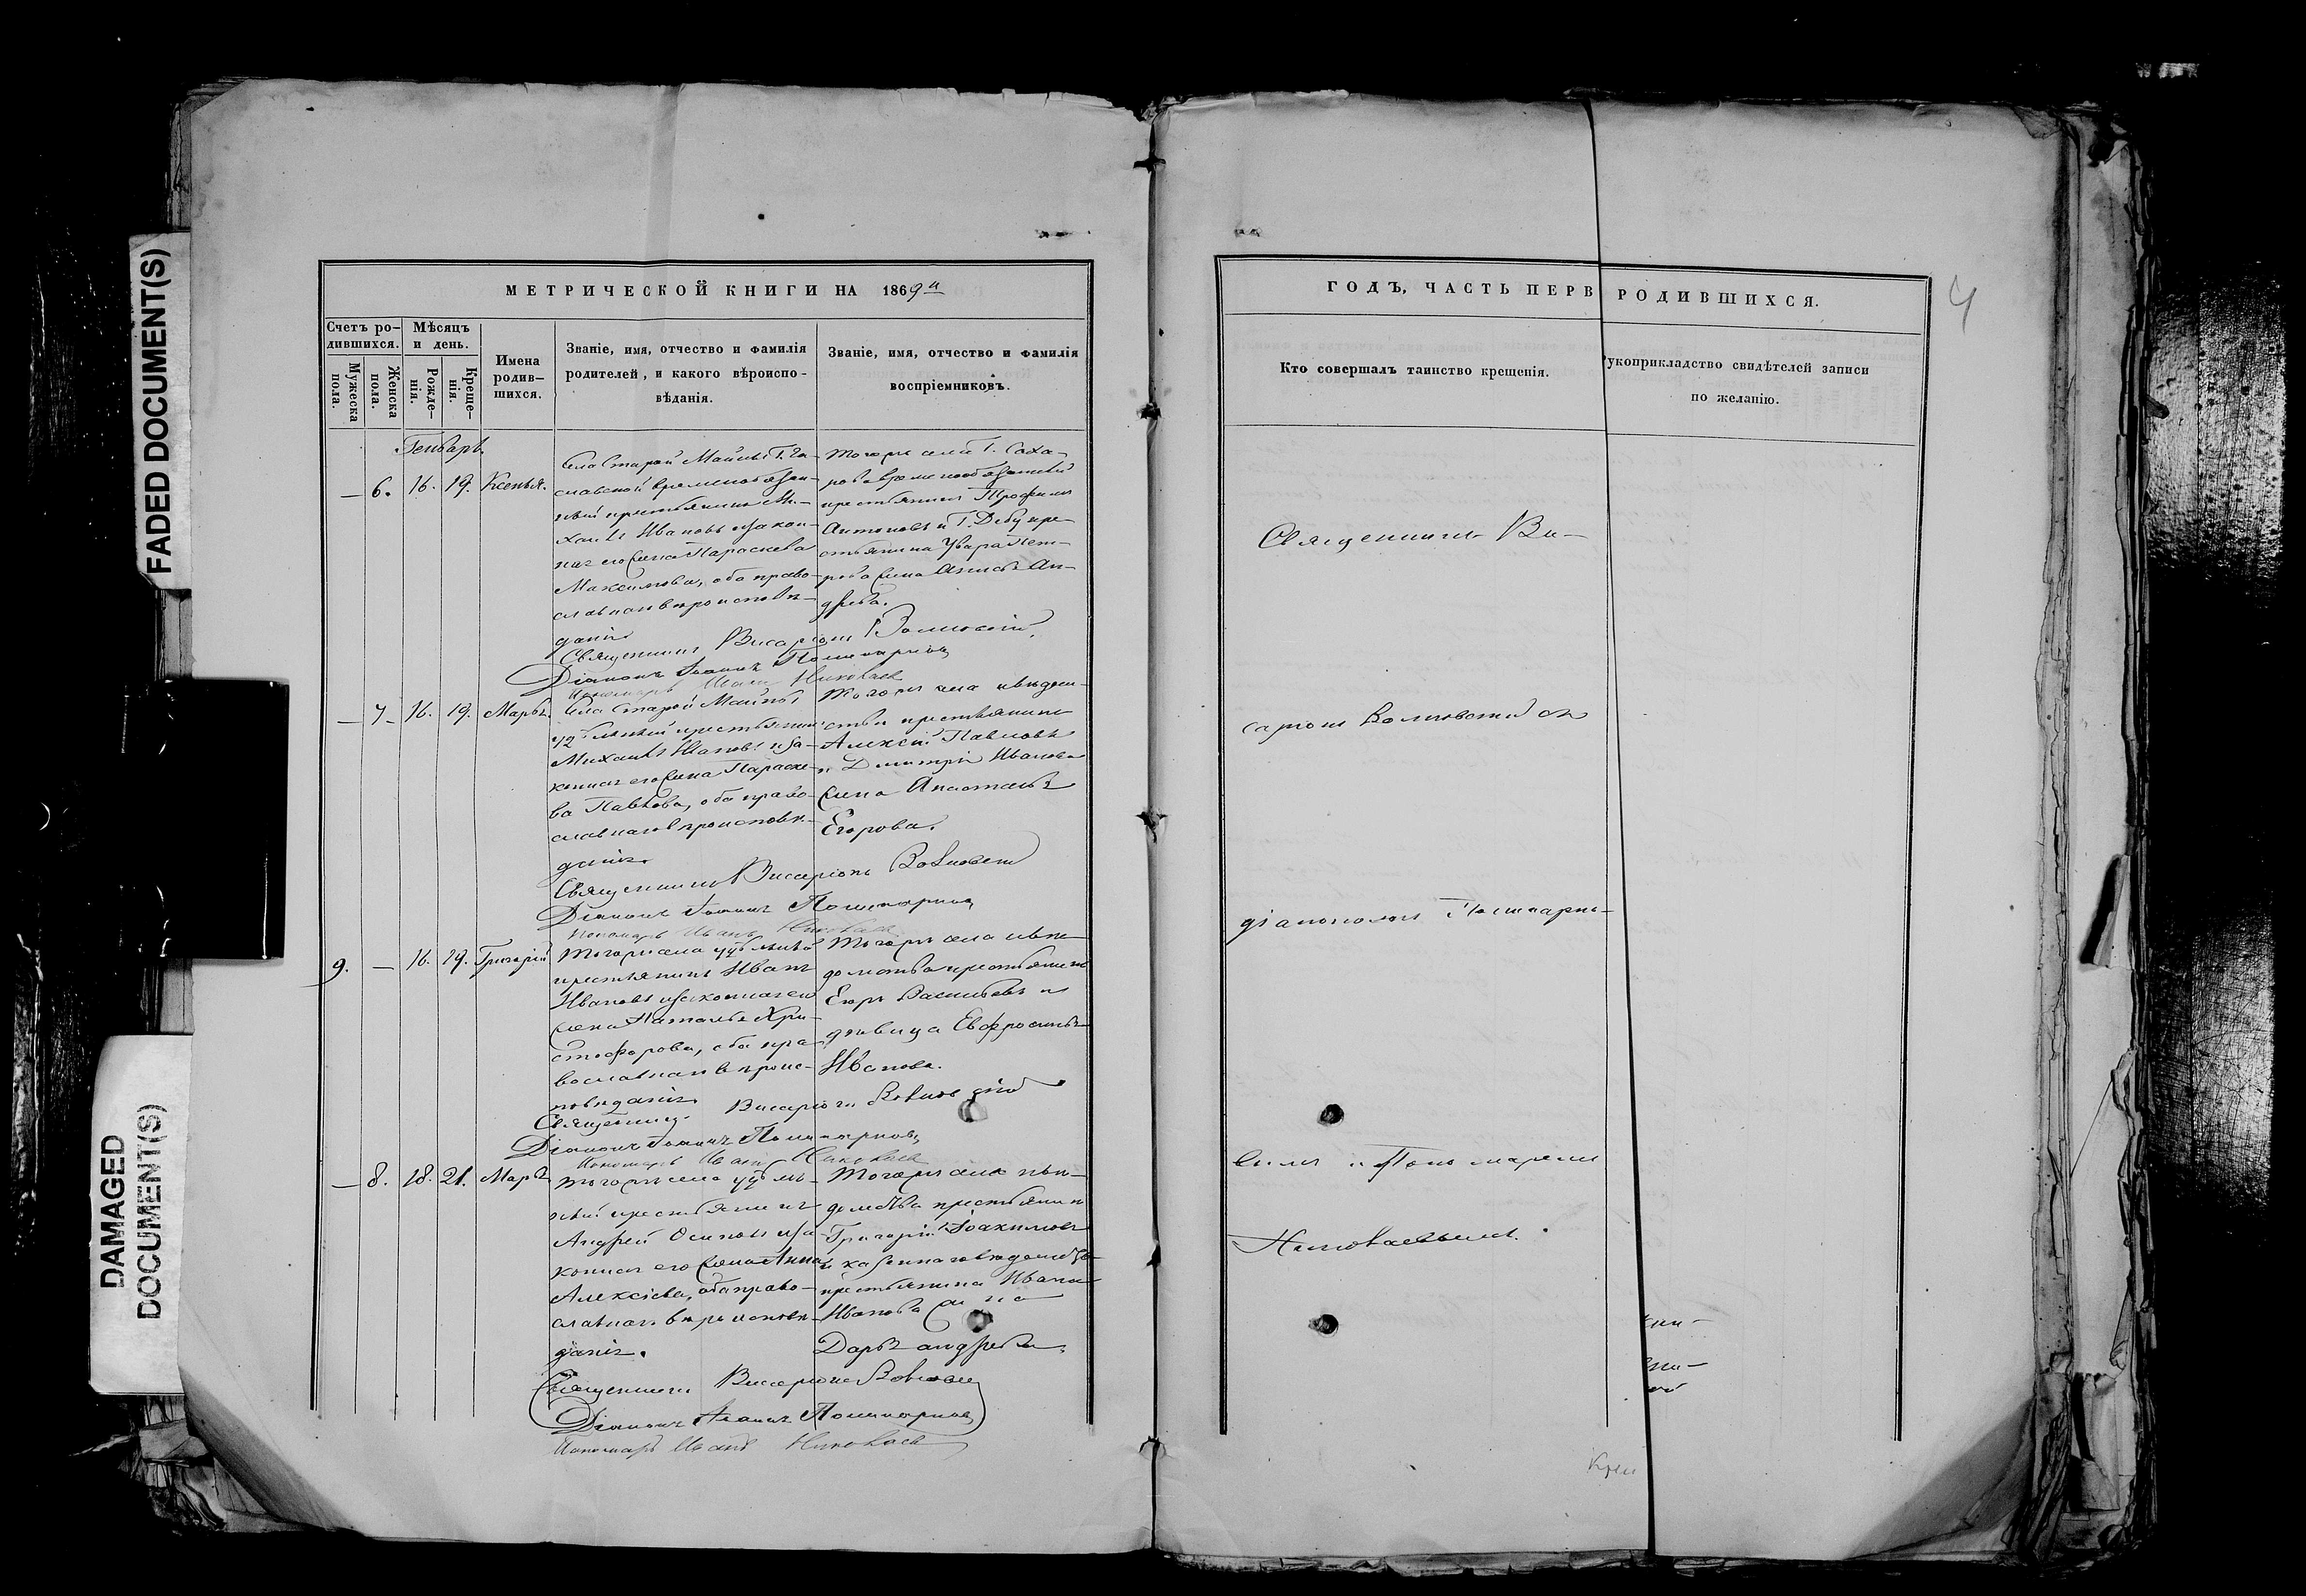 FADED DOCUMENT(S)
DAMAGED
DOCUMENT(S)
МЕТРИЧЕСКОЙ КНИГИ НА 1869й
Счетъ ро-
дившихся.
Мужеска
пола.
Женска
пола.
Мѣсяцъ
и день.
Рожде-
нія.
Креще-
нія.
Имена
родив-
шихся.
Званіе, имя, отчество и фамилія
родителей, и какого вѣроиспо-
вѣданія.
Званіе, имя, отчество и фамилія
воспріемниковъ.
Генварь
— 6. 16. 19. Ксенья.
Села Старой Майны Г.
временнообязан-
ный крестьянинъ Ми-
хаилъ Ивановъ и закон-
ная его жена Параскева
Максимова, оба право-
славнаго вѣроисповѣ-
данія
тогожъ села Г. Саха-
рова временнообязанный
крестьянинъ Трофимъ
Антоновъ и Г. Дебу кре-
стьянина Увара Пет-
рова жена Анисья Ан-
дреева.
Священникъ Висаріонъ Волковскій
Діаконъ Іоаннъ
Пономарь Иванъ Николаев
— 7 — 16. 19. Марья.
Села Старой Майны
удѣльный крестьянинъ
Михаилъ Ивановъ и за-
конная его жена Параске-
ва Павлова, оба право-
славнаго вѣроисповѣ-
данія.
Тогожъ села вѣдом-
ства крестьянинъ
Алексѣй Павловъ
и Димитрія Иванова
жена Анастасья
Егорова.
Священникъ Висаріонъ
Діаконъ Іоаннъ
Пономарь Иванъ Николаев
9. — 16. 19. Григорій
Тогожъ села удѣльный
крестьянинъ Иванъ
Ивановъ и законная его
жена Наталья Хри-
стофорова, оба пра-
вославнаго вѣроис-
повѣданія
Тогожъ села вѣ-
домства крестьянинъ
Егоръ Васильевъ и
дѣвица Евфросинья
Иванова.
Священникъ Висаріонъ
Діаконъ Іоаннъ
Пономарь Иванъ Николаев
— 8. 18. 21. Марья
тогожъ села удѣль-
ный крестьянинъ
Андрей Осиповъ и за-
конная его жена Анна
Алексѣева, оба право-
славнаго вѣроисповѣ-
данія.
Тогожъ села вѣ-
домства крестьянинъ
Григорій Іоакимовъ
и казеннаго вѣдомства
крестьянина Ивана
Иванова жена
Дарья Андреева.
Священникъ Висаріонъ
Діаконъ Іоаннъ
Пономарь Иванъ Николаев
ГОДЪ, ЧАСТЬ ПЕРВ РОДИВШИХСЯ.
4
Кто совершалъ таинство крещенія.
укоприкладство свидѣтелей записи
по желанію.
Священникъ Ви-
саріонъ Волковскій съ
діакономъ
и Пономаремъ
Николаевымъ.